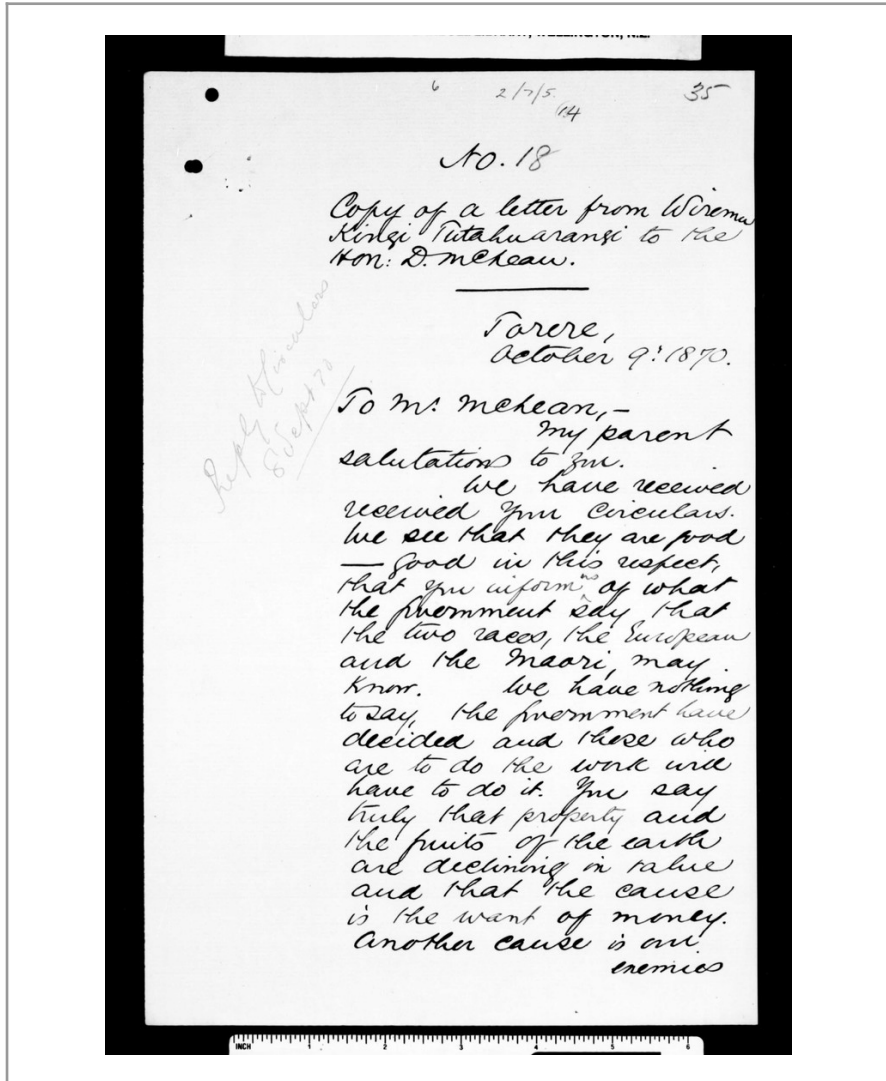 WELLINGTON, N.Z.
6 2/7/5. 35
14
No. 18
Copy of a letter from Wiremu
Kingi Tutahuarangi to the
Hon: D. McLean.
Torere,
October 9: 1870.
Reply to Circulars
8 Sept 70
To Mr. McLean,-
My parent
salutations to you.
We have received
received your circulars.
We see that they are good
— good in this respect,
that you inform us of what
the Government say that
the two races, the European
and the Maori, may
know. We have nothing
to say, the Government have
decided and those who
are to do the work will
have to do it. You say
truly that property and
the fruits of the earth
are declining in value
and that the cause
is the want of money.
Another cause is our
enemies
INCH 1 2 3 4 5 6